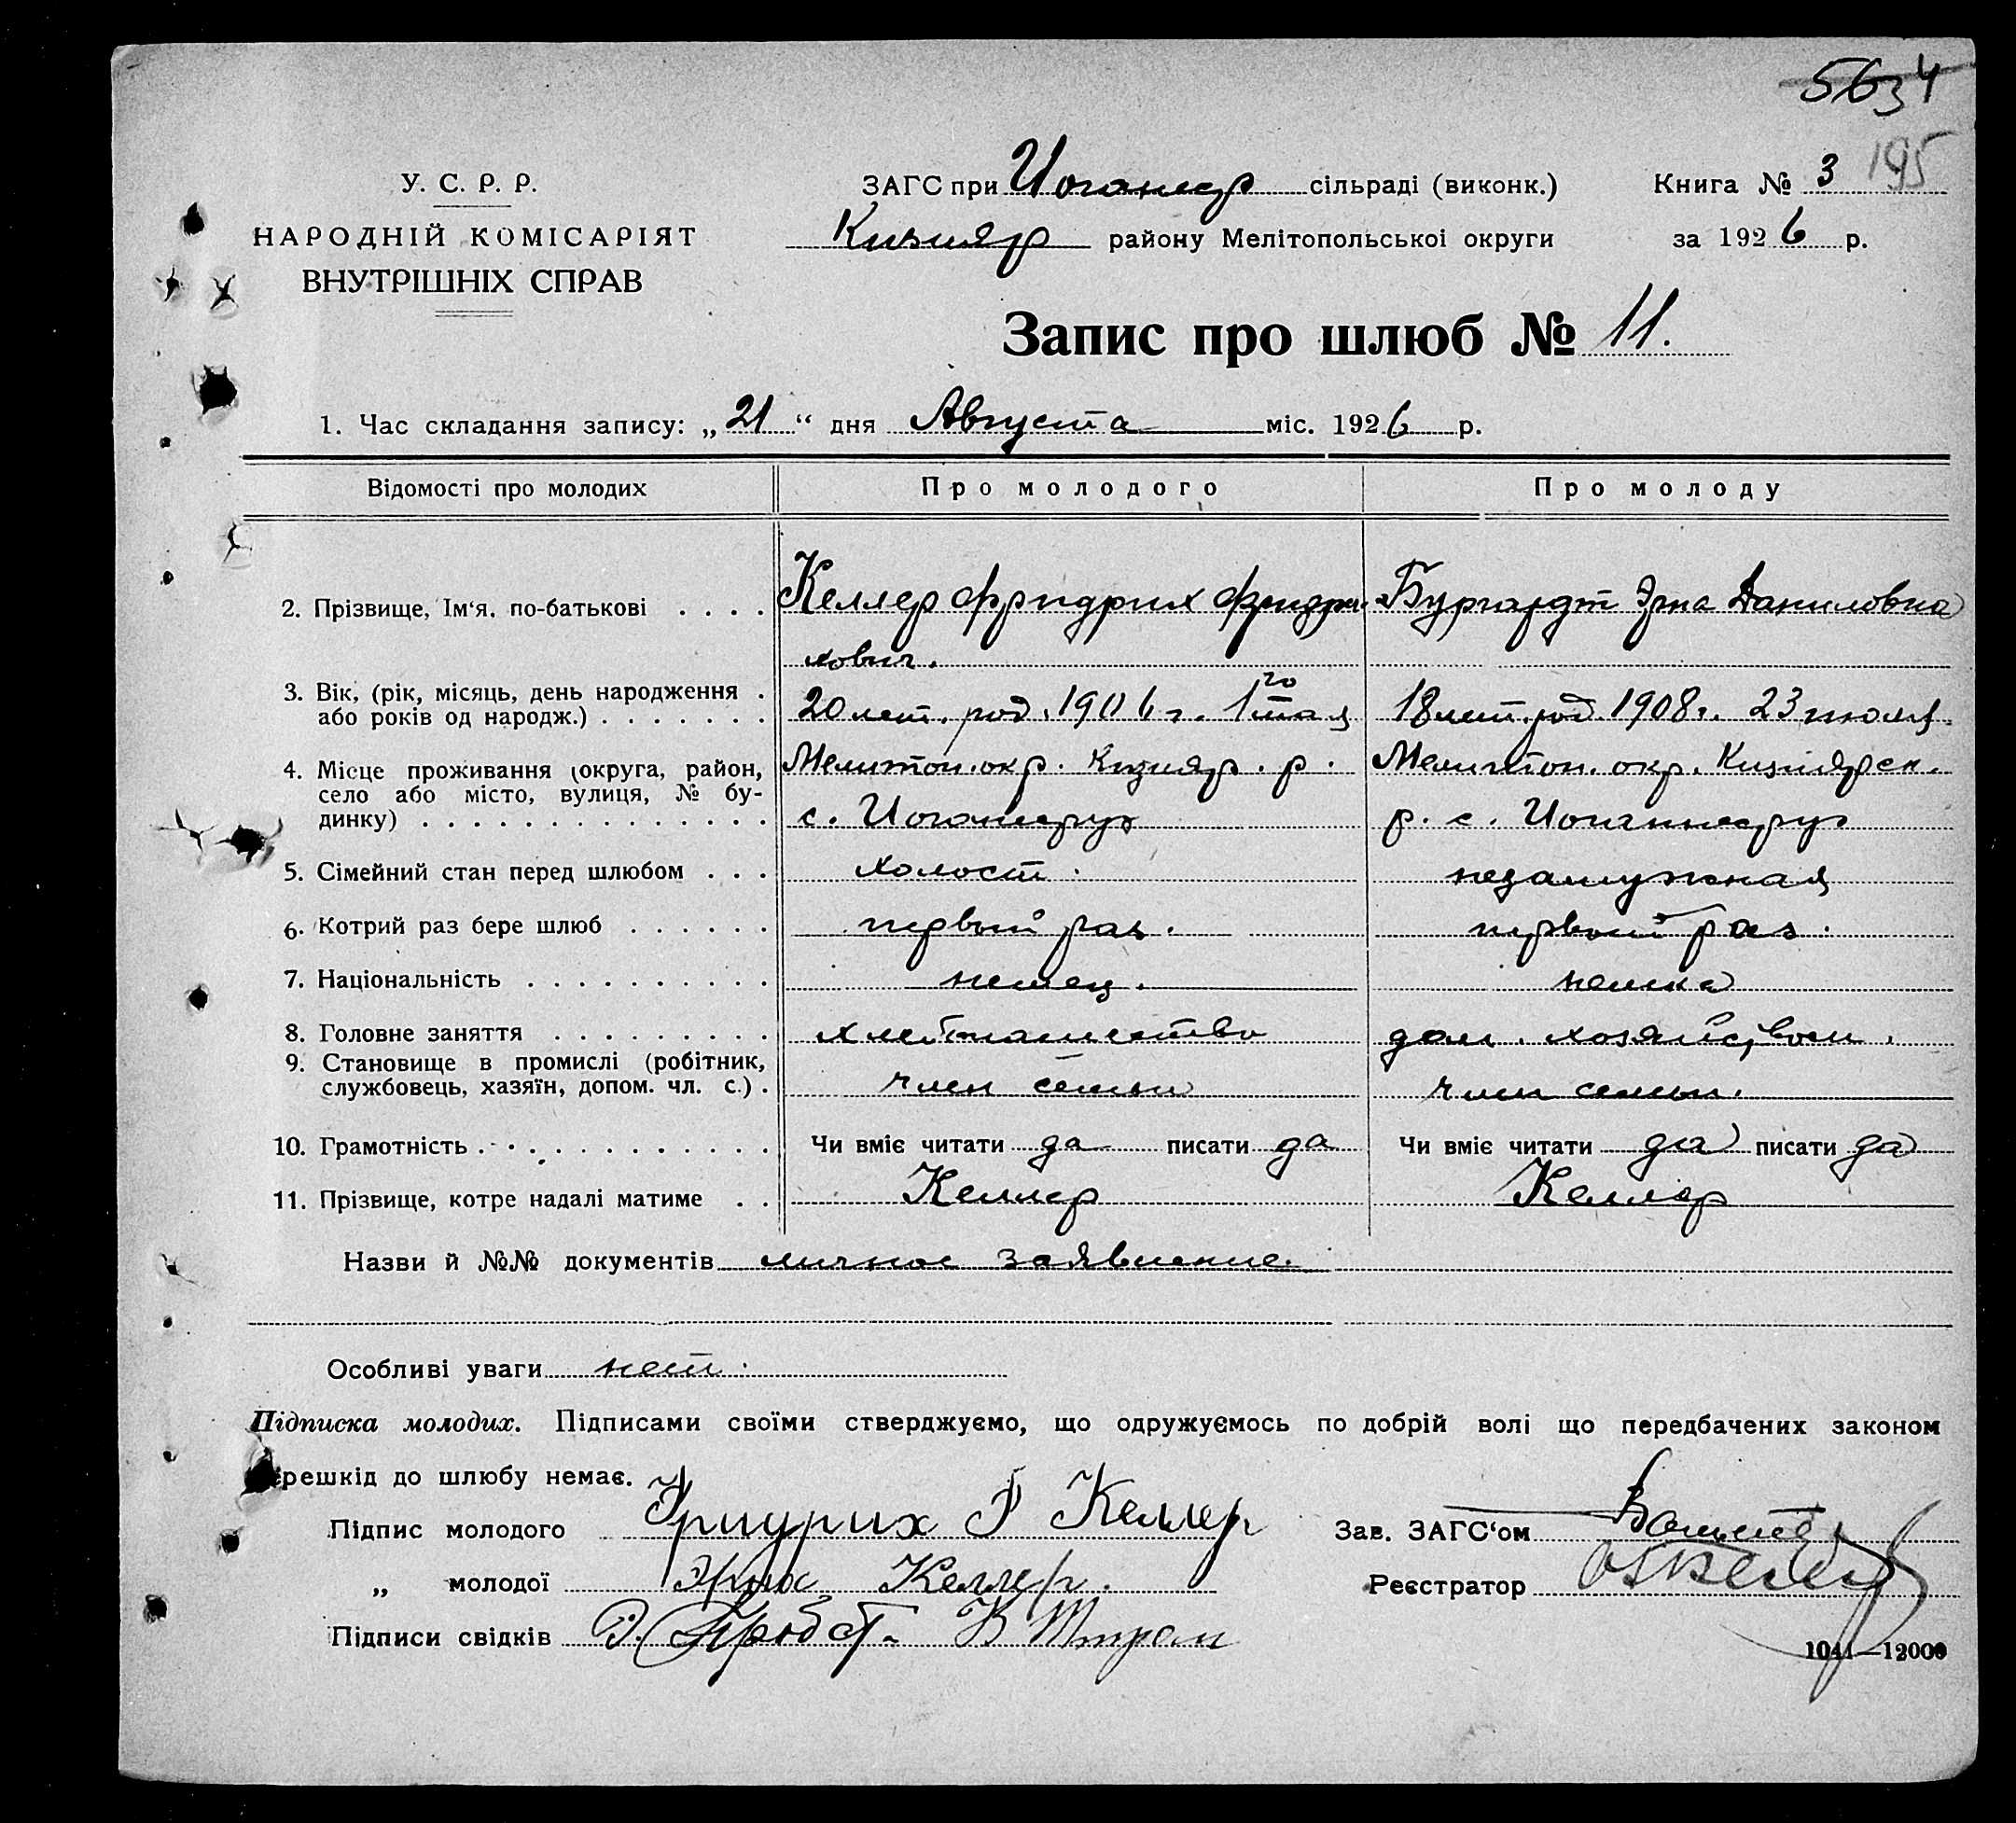 5634
195
У. С. Р. Р.
НАРОДНІЙ КОМІСАРІЯТ
ВНУТРІШНІХ СПРАВ
ЗАГС при Иоганнеср сільраді (виконк.) Книга № 3
Кизияр району Мелітопольської округи за 1926 р.
Запис про шлюб № 11.
1. Час складання запису: „21“ дня Августа міс. 1926 р.
Відомості про молодих Про молодого Про молоду
2. Прізвище, Ім'я, по-батькові . . . . Келлер Фридрих Фридри- Бургардт Эрна Даниловна
хович.
3. Вік, (рік, місяць, день народження . або років од народж.) . . . . . . . 20 лет. род. 1906 г. 1го мая 18 лет. род. 1908 г. 23 июля
4. Місце проживання (округа, район, Мелитоп. окр. Кизияр. р. Мелитоп. окр. Кизиярск.
село або місто, вулиця, № бу-
динку) . . . . . . . . . . . . . . с. Иоганнесруэ р. с. Иоганнесруэ
5. Сімейний стан перед шлюбом . . . холост. незамужная
6. Котрий раз бере шлюб . . . . . . первый раз. первый раз.
7. Національність . . . . . . . . . . немец. немка
8. Головне заняття . . . . . . . . . хлебопашество дом. хозяйством.
9. Становище в промислі (робітник,
службовець, хазяїн, допом. чл. с.) . член семьи член семьи.
10. Грамотність . . . . . . . . . . . . Чи вміє читати да писати да Чи вміє читати да писати да
11. Прізвище, котре надалі матиме . . Келлер Келлер
Назви й №№ документів личное заявление.
Особливі уваги нет.
Підписка молодих. Підписами своїми стверджуємо, що одружуємось по добрій волі що передбачених законом
решкід до шлюбу немає.
Підпис молодого Фридрих Ф Келлер Зав. ЗАГС'ом
„ молодої Эрна Келлер. Реєстратор
Підписи свідків
1041—12000